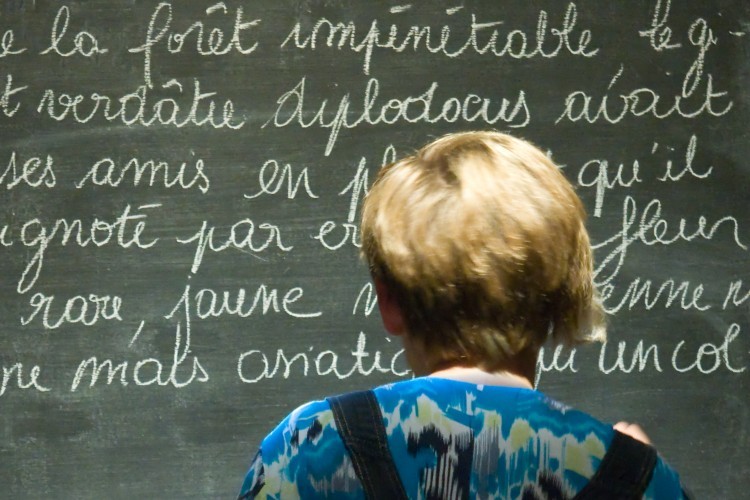 e la forêt impénétrable le gi-
t verdâtre diplodocus avait
ses amis en qu'il
ignoté par fleur
rare, jaune enne
ne mais asiatic un col